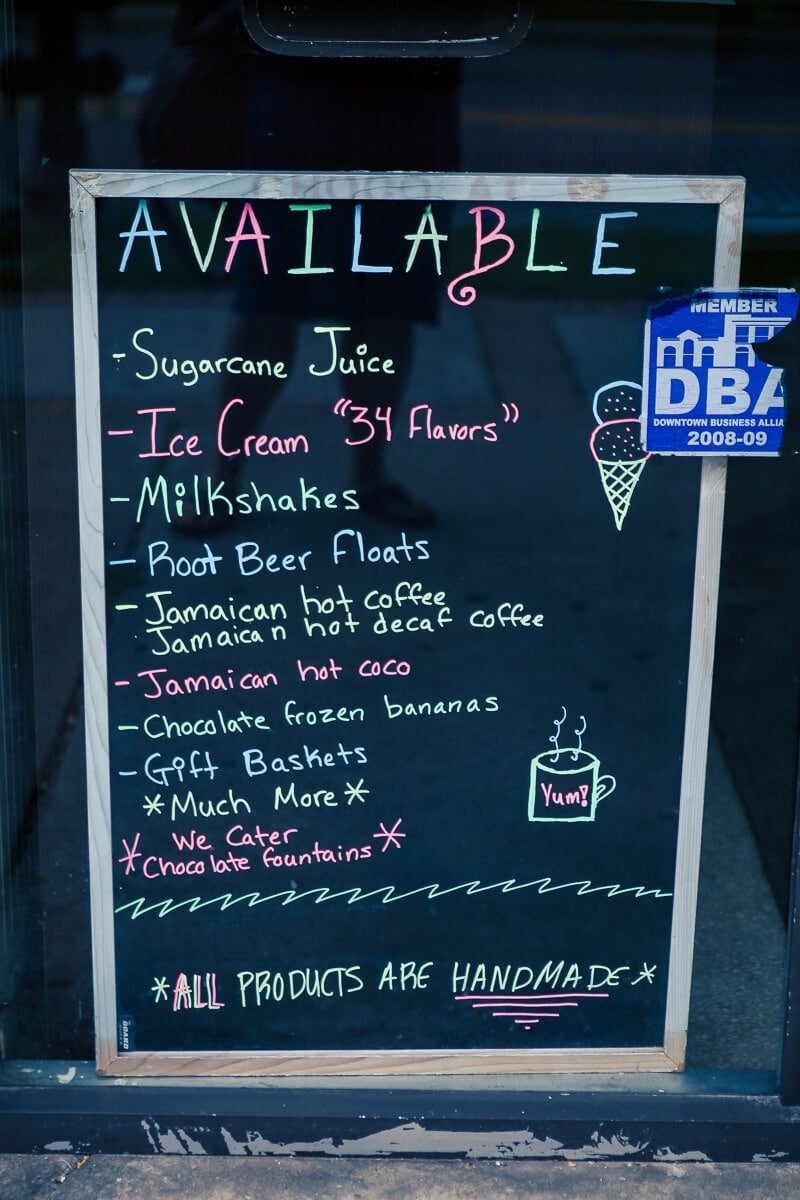 AVAILABLE
- Sugarcane Juice
- Ice Cream "34 Flavors"
- Milkshakes
- Root Beer Floats
- Jamaican hot coffee
Jamaican hot decaf coffee
- Jamaican hot coco
- Chocolate frozen bananas
- Gift Baskets
*Much More*
* We Cater
Chocolate fountains *
Yum!
*ALL PRODUCTS ARE HANDMADE*
MEMBER
DBA
DOWNTOWN BUSINESS ALLIA
2008-09
BOARD